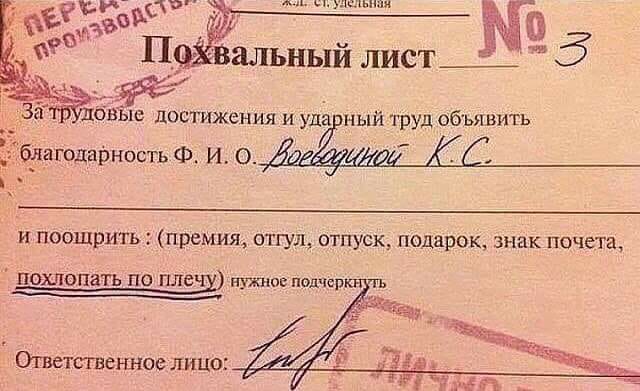 ж.д. ст. удельная
ПЕРЕД
ПРОИЗВОДСТВА
Похвальный лист № 3
За трудовые достижения и ударный труд объявить
благодарность Ф. И. О. Воеводиной К. С.
и поощрить : (премия, отгул, отпуск, подарок, знак почета,
похлопать по плечу) нужное подчеркнуть
Ответственное лицо:
ЛИЧНО